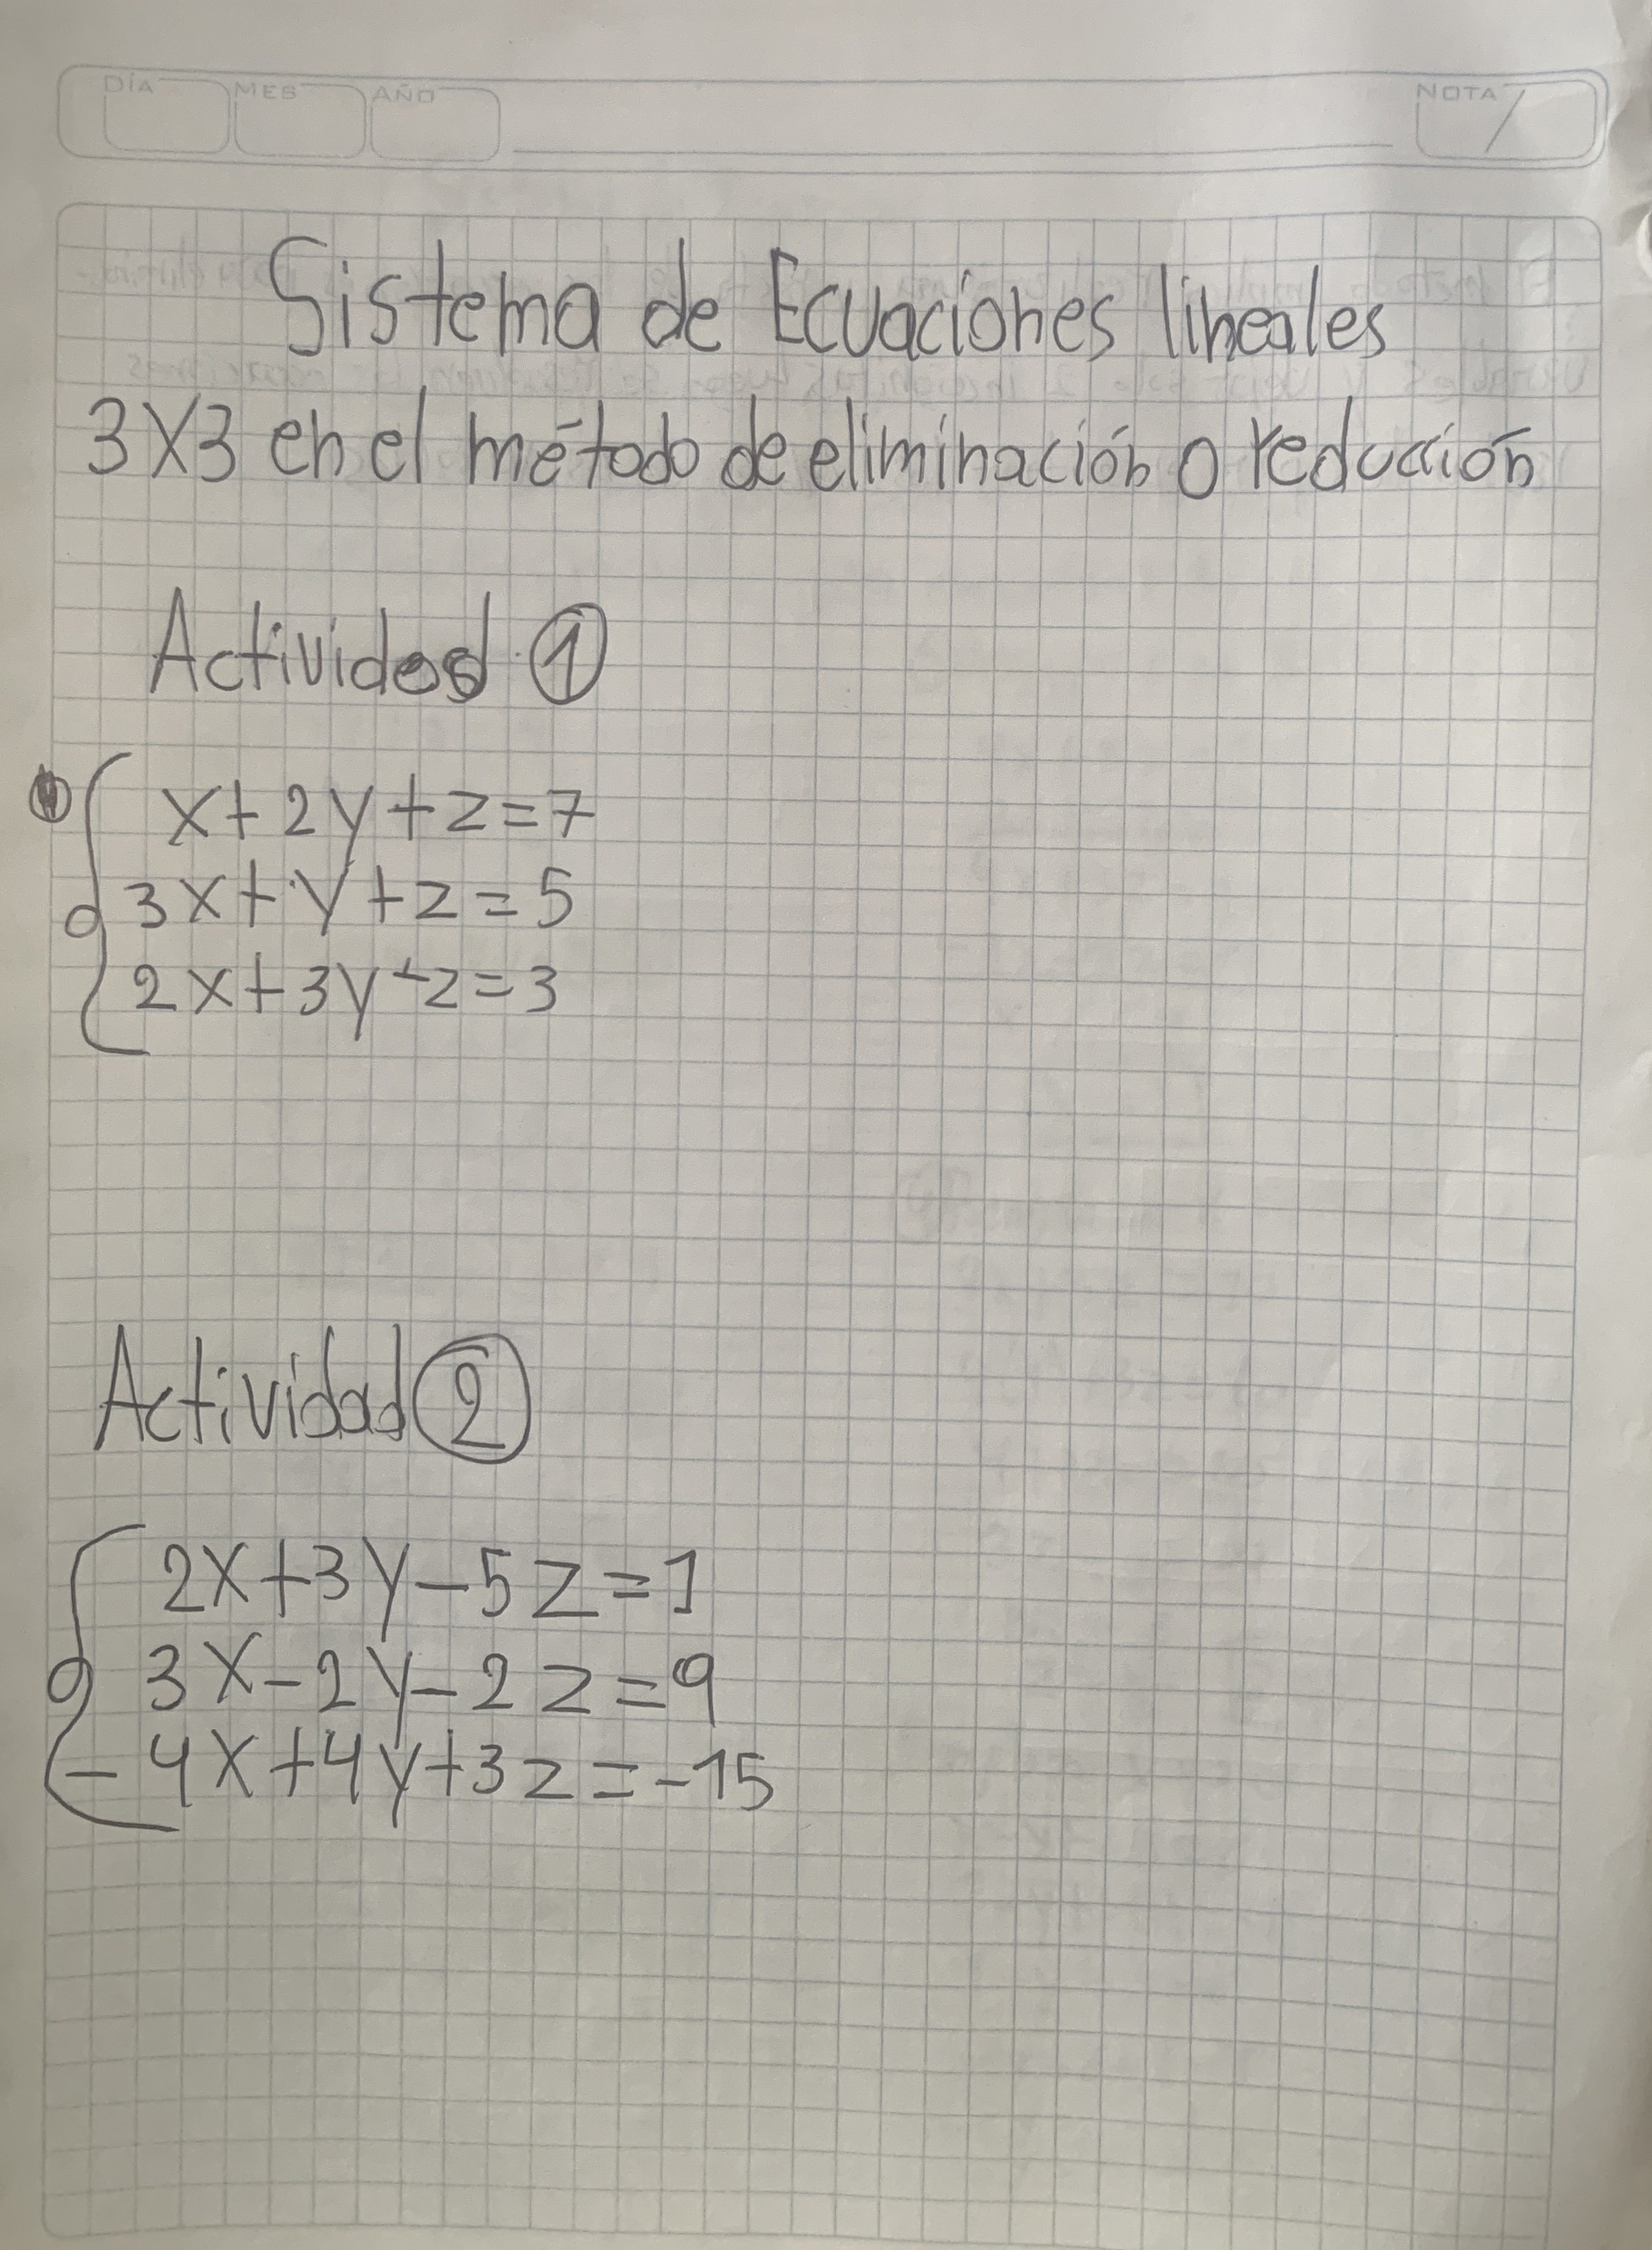 DÍA MES AÑO NOTA
Sistema de Ecuaciones lineales
3X3 en el método de eliminación o reducción
Actividad 1
x+2y+z=7
3x+y+z=5
2x+3y z=3
Actividad 2
2x+3y-5z=1
3x-2y-2z=9
-4x+4y+3z=-15